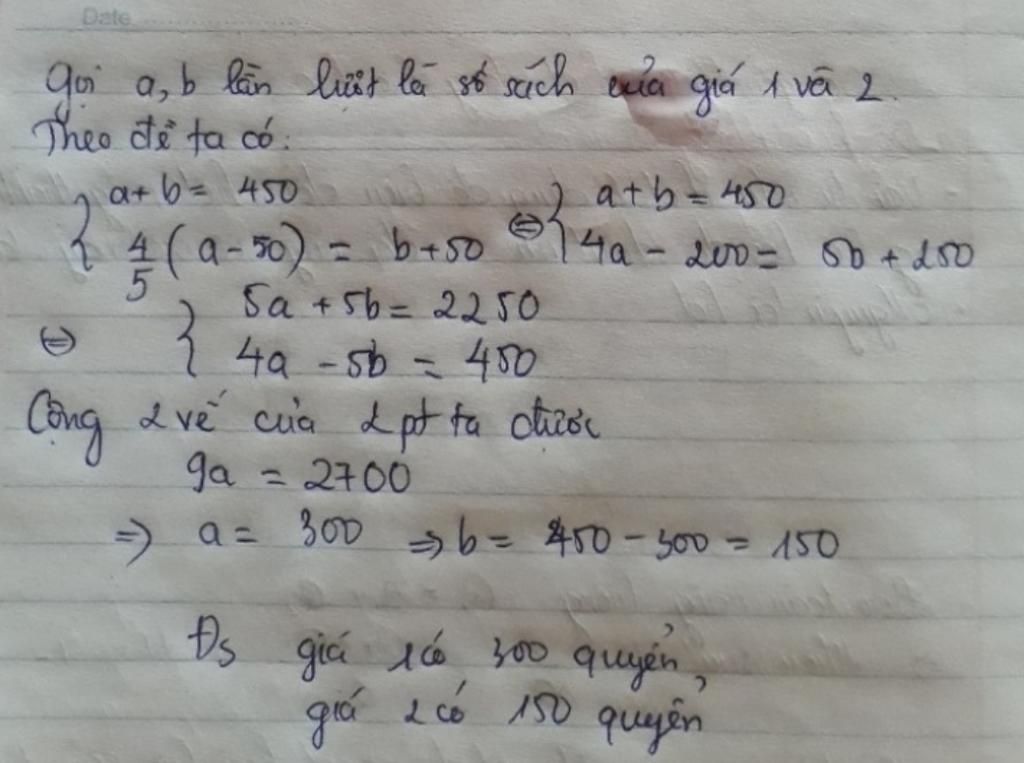 Date
Gọi a, b lần lượt là số sách của giá 1 và 2.
Theo đề ta có:
{ a + b = 450 ⇔ { a + b = 450
{ 4/5 ( a - 50) = b + 50 { 4a - 200 = 5b + 250
⇔ { 5a + 5b = 2250
{ 4a - 5b = 450
Cộng 2 vế của 2 pt ta được
9a = 2700
⇒ a = 300 ⇒ b = 450 - 300 = 150
Đs giá 1 có 300 quyển,
giá 2 có 150 quyển